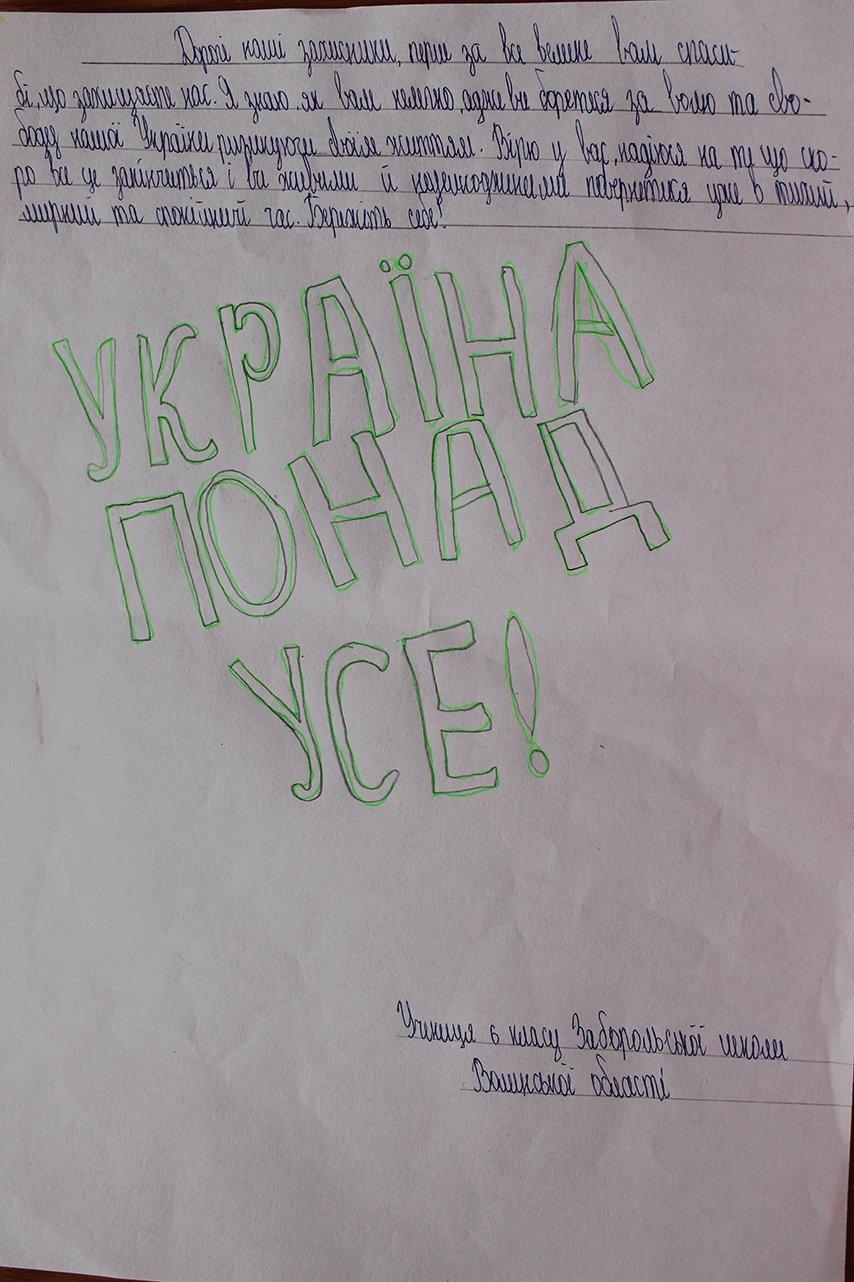 Дорогі наші захисники, перш за все велике вам спаси-
бі, що захищаєте нас. Я знаю, як вам нелегко, адже ви боретися за волю та сво-
боду нашої України ризикуючи своїм життям. Вірю у вас, надіюся на ту що ско-
ро все це закінчиться і ви живими й неушкодженими повернетися уже в тихий,
мирний та спокійний час. Бережіть себе!
УКРАЇНА
ПОНАД
УСЕ!
Учниця 6 класу Заборольської школи
Волинської області